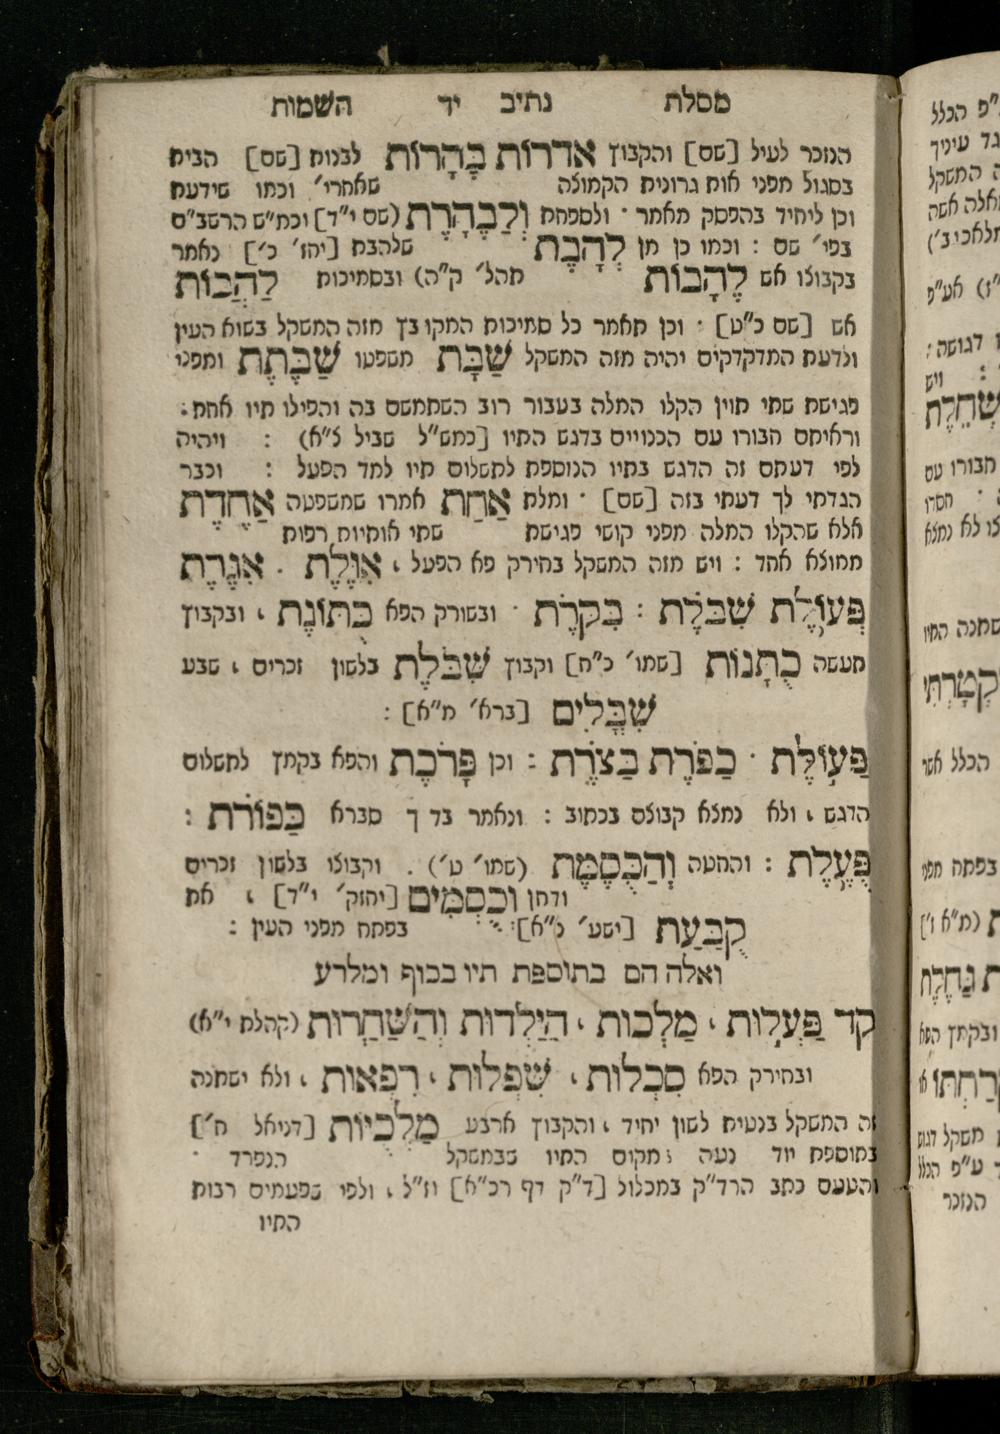 מסלת נתיב יד השמות
הנזכר לעיל [שם] והקבוץ אדרות בֶּהָרוֹת לבנות [שם] הבית
בסגול מפני אות גרונית הקמוצה שאחרי׳ וכמו שידעת
וכן ליחיד בהפסק תאמר · ולספחת וְלַבֶּהָרֶת (שם י״ד) וכמ״ש הרשב״ם
בפי׳ שם : וכמו כן מן לֶהָבֶת שלהבת [יחז׳ כ׳] נאמר
בקבוצו אש לֶהָבוֹת תהל׳ ק״ה) ובסמיכות לַהֲבוֹת
אש [שם כ״ט] · וכן תאמר כל סמיכות המקובץ מזה המשקל בשוא העין
ולדעת המדקדקים יהיה מזה המשקל שַׁבָּת משפטו שַׁבֶּתֶת ומפני
פגישת שתי תוין הקלו המלה בעבור רוב השתמשם בה והפילו תיו אחת.
וראיתם חבורו עם הכנויים בדגש התיו [כמש״ל שביל ל״א) : ויהיה
לפי דעתם זה הדגש בתיו הנוספת לתשלום תיו למד הפעל : וכבר
הגדתי לך דעתי בזה [שם] · ומלת אַחַת אמרו שמשפטה אַחֶדֶת
אלא שהקלו המלה מפני קושי פגישת שתי אותיות רפות
ממוצא אחד : ויש מזה המשקל בחירק פא הפעל , אִוֶּלֶת . אִגֶּרֶת
פְּעוֹלֶת שִׁבֹּלֶת : בִּקֹּרֶת · ובשורק הפא כֻּתּוֹנֶת , ובקבוץ
תעשה כֻּתֳּנוֹת [שמו׳ כ״ח] וקבוץ שִׁבֹּלֶת בלשון זכרים , שבע
שִׁבֳּלִים [ברא׳ מ״א] :
פַּעוֹלֶת · כַּפֹּרֶת בַּצֹּרֶת : וכן פָּרֹכֶת והפא בקמץ לתשלום
הדגש , ולא נמצא קבוצם בכתוב : ונאמר בד ך סברא כַּפּוֹרֹת :
פֻּעֶלֶת : והחטה וְהַכֻּסֶּמֶת (שמו׳ ט׳) . וקבוצו בלשון זכרים
ודחן וְכֻסְּמִים [יחזק׳ י״ד] , את
קֻבַּעַת [ישע׳ נ״א]: בפתח מפני העין :
ואלה הם בתוספת תיו בכוף ומלרע
קד פַּעְלוּת , מַלְכוּת , הַיַּלְדוּת וְהַשַּׁחֲרוּת (קהלת י״א)
ובחירק הפא סִכְלוּת , שִׁפְלוּת , רִפְאוּת , ולא ישתנה
זה המשקל בנטית לשון יחיד , והקבוץ ארבע מַלְכֻיּוֹת [דניאל ח׳]
בתוספת יוד נעה במקום התיו שבמשקל הנפרד ·
והטעם כתב הרד״ק במכלול [ד״ק דף רכ״א] וז״ל , ולפי שפעמים רבות
התיו